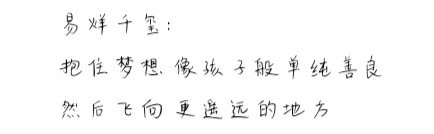 易烊千玺:
抱住梦想像孩子般单纯善良
然后飞向更遥远的地方